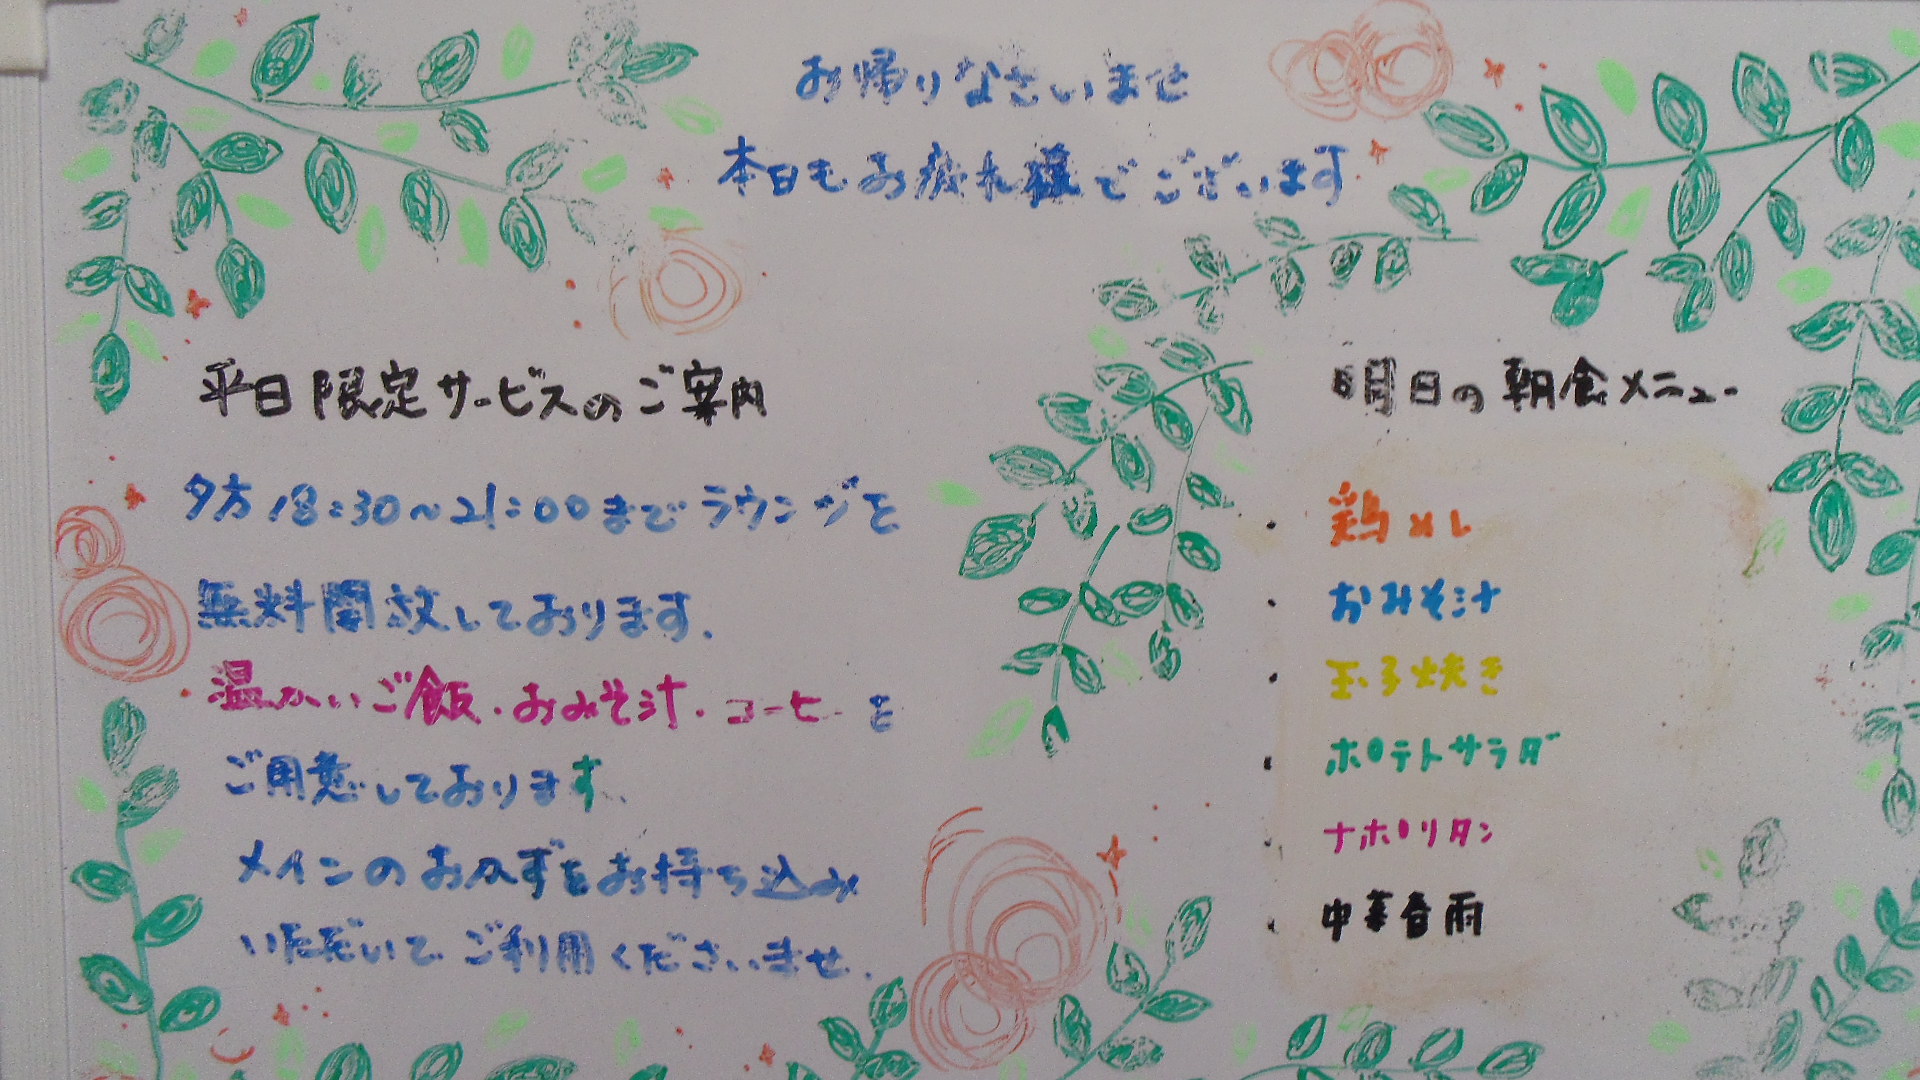 お帰りなさいませ
本日もお疲れ様でございます
平日限定サービスのご案内
夕方18:30〜21:00までラウンジを
無料開放しております.
温かいご飯.おみそ汁.コーヒーを
ご用意しております.
メインのおかずをお持ち込み
いただいてご利用くださいませ.
明日の朝食メニュー
・鶏めし
・おみそ汁
・玉子焼き
・ポテトサラダ
・ナポリタン
・中華春雨